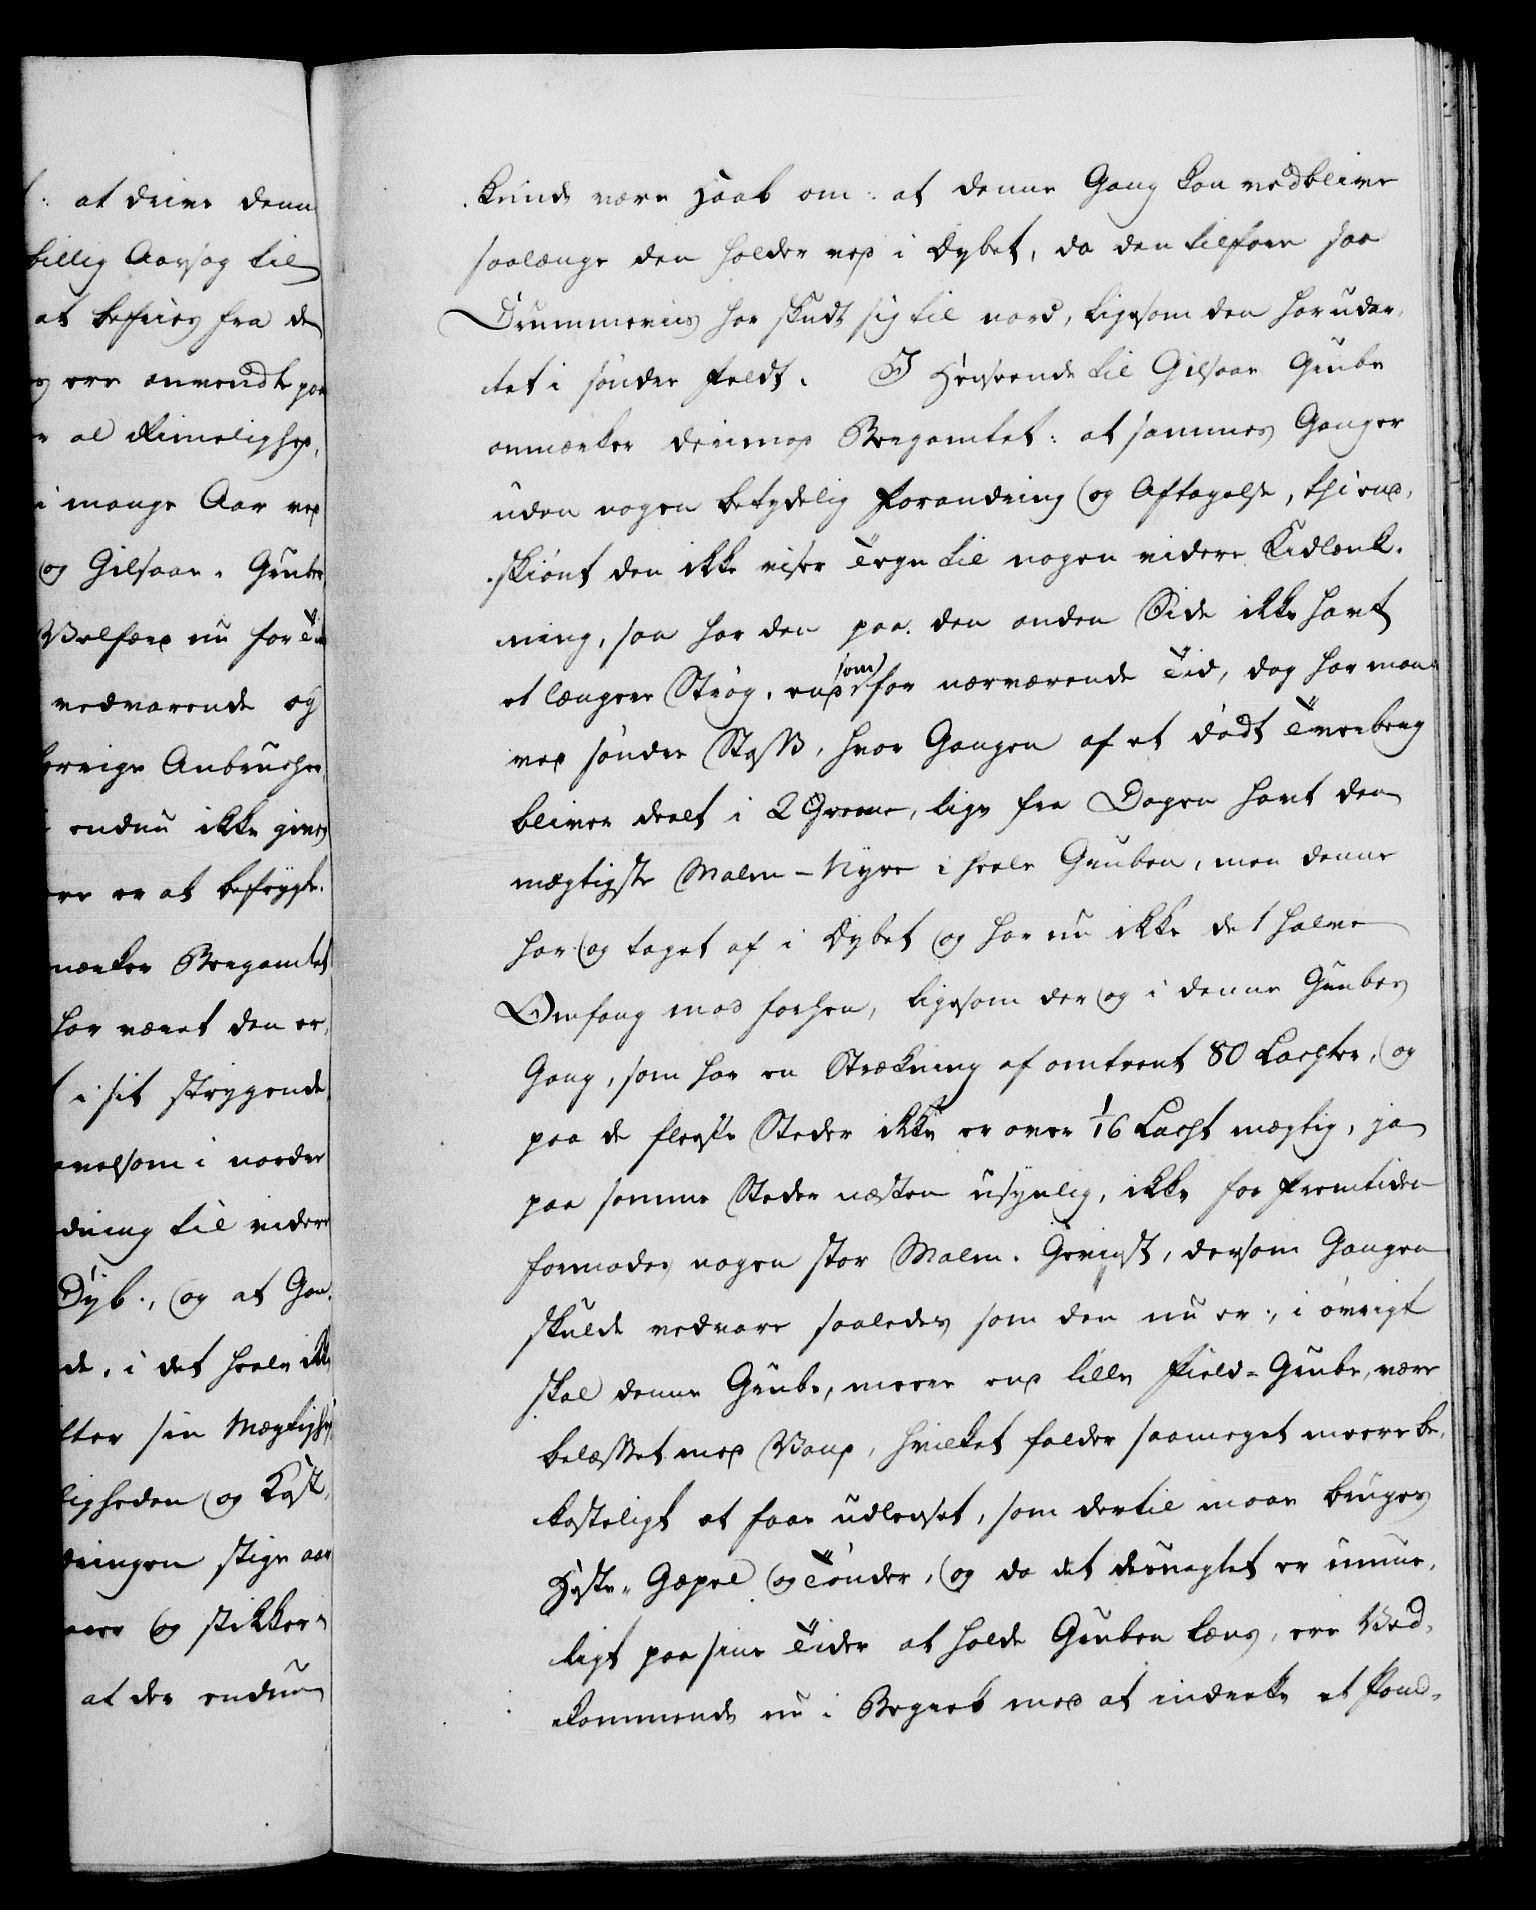 : at drive denn
billig Aarsag til
at befries fra de
ere anvendte paa
al Rimelighed,
i mange Aar ved
og Gilsaae-Grube
Velfærd nu for Tii
vedvarende og
Anbrucher
endnu ikke gives
er at befrygte.
mærker Bergamtet
har været den er,
i sit strygende
i norder
dning til videre
Dyb., og at Gan-
de, i det heele ikk
sin Mægtighed
ligheden og Kost-
dringen stige aar
og stikker-
at der endnu
kunde være Haab om: at denne Gang kan vedblive
saalænge den holder ved i Dybet, da den tilforn saa
Drummeviis har skudt sig til nord, ligesom den har udar-
tet i sønder Feldt. I Henseende til Gilsaae Grube
anmærker derimod Bergamtet: at sammes Ganger
uden nogen betydelig Forandring og Aftagelse, thi end-
skiønt den ikke viser Tegn til nogen videre Udlænk-
ning, saa har den paa den anden Side ikke havt
et længere Strøg, end som for nærværende Tid, dog har man
ved sønder Stoss, hvor Gangen af et dødt Tverberg
bliver deelt i 2 Grene, lige fra Dagen havt den
mægtigste Malm-Nyre i heele Gruben, men denne
har og taget af i Dybet og har nu ikke det halve
Omfang mod forhen, ligesom der og i denne Grubes
Gang, som har en Strækning af omtrent 80 Lachter, og
paa de fleeste Steder ikke er over 1/16 Lacht mægtig, ja
paa somme Steder næsten usynlig, ikke for Fremtiden
formodes nogen stor Malm-Gevinst, dersom Gangen
skulde vedvare saaledes som den nu er; i øvrigt
skal denne Grube, meere end lille Field-Grube, være
belæsset med Vand, hvilket falder saameget meere be-
kosteligt at faae udløset, som dertil maae bruges
Heste-Gæpel og Tønder, og da det desuagtet er umue-
ligt paa sine Tider at holde Gruben læns, ere Ved-
kommende nu i Begreb med at indrette et Pomd-